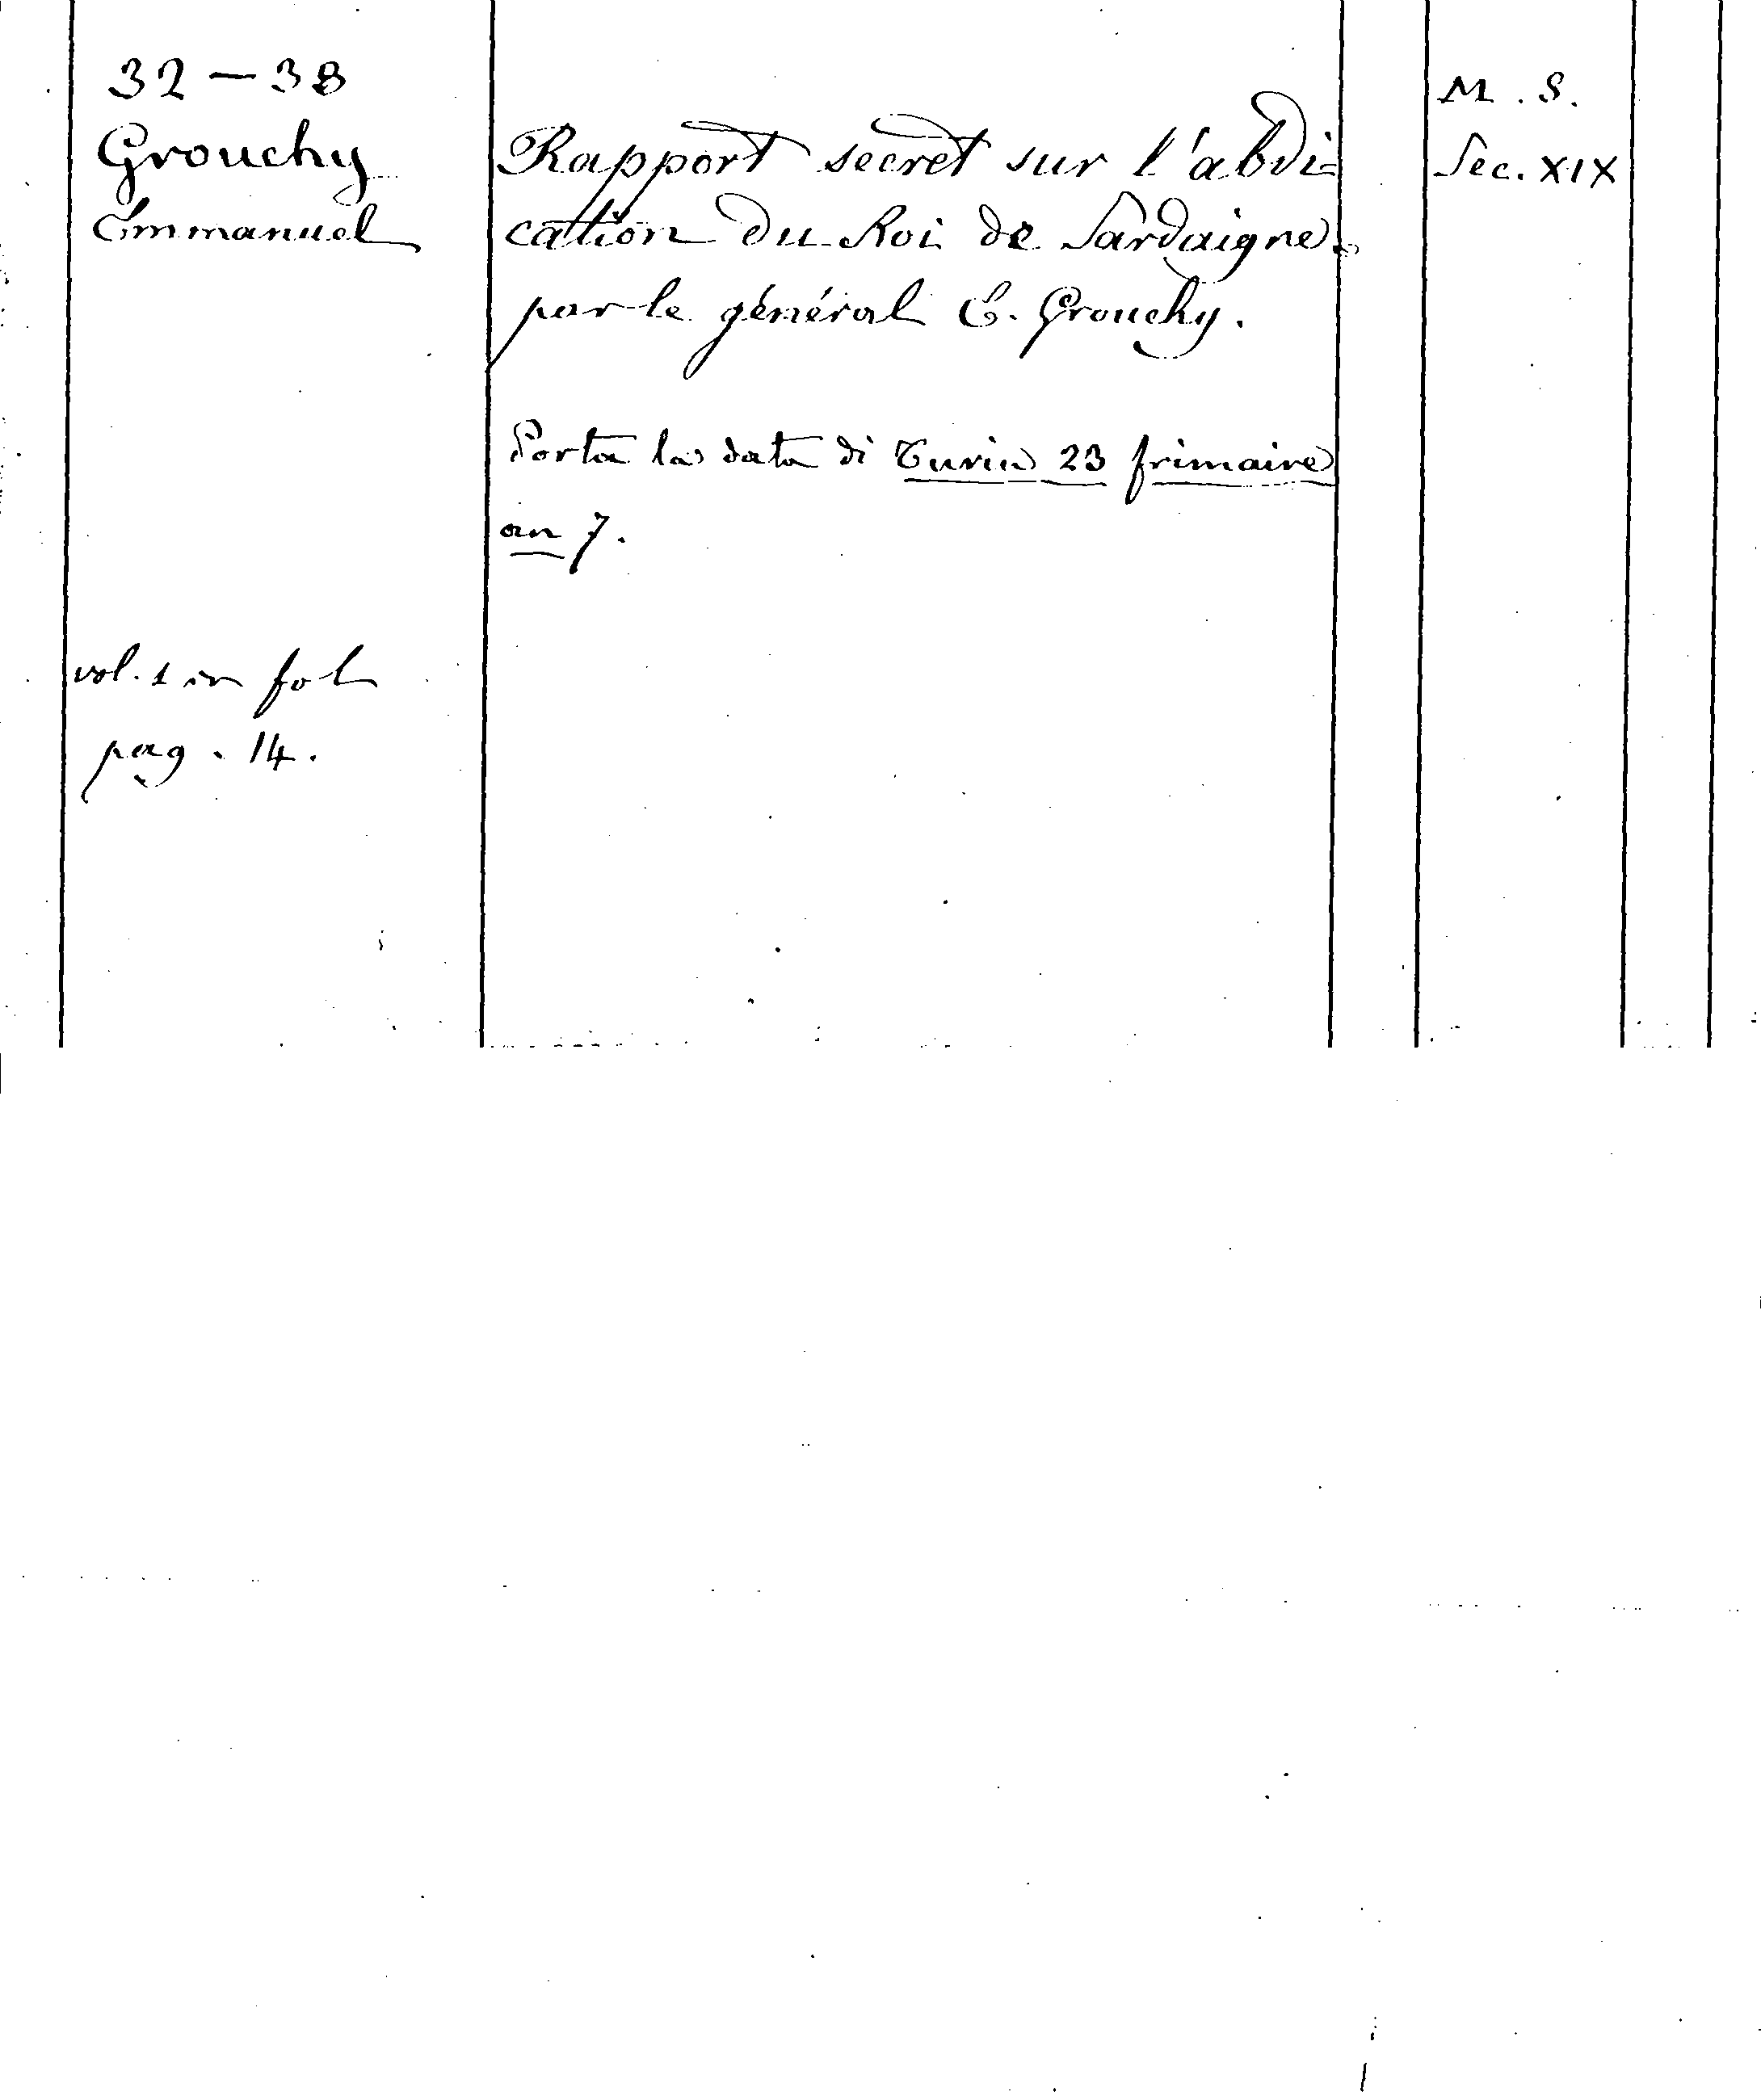 32 — 38
Grouchy
Emmanuel
Rapport secret sur l'abdi=
cation du Roi de Sardaigne
par le général E. Grouchy.
Porta la data di Turin 23 frimaire
an 7.
vol. 1 in fol
pag. 14.
M. S.
Sec. XIX